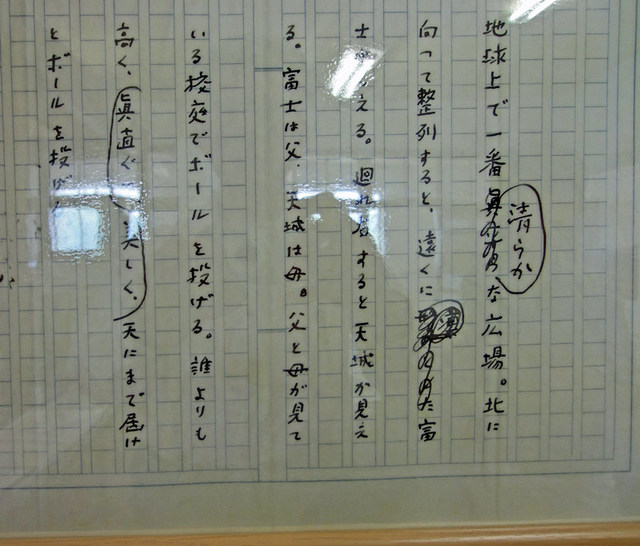 地球上で一番清らかな広場。北に
向って整列すると、遠くに富
士が見える。廻れ右すると天城が見え
る。富士は父、天城は母。父と母が見て
いる校庭でボールを投げる。誰よりも
高く、眞直ぐに、美しく、天にまで届け
とボールを投げ